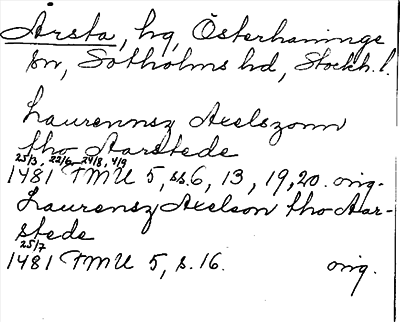 Årsta, hg, Österhaninge
sn, Sotholms hd, Stockh. l.
Laurennsz Axelszonn
tho Aarstede
25/3, 22/6, 24/8, 4/9
1481 TMU 5, ss. 6, 13, 19, 20. orig.
Laurensz Axelson tho Aar-
stede
25/7
1481 TMU 5, s. 16. orig.